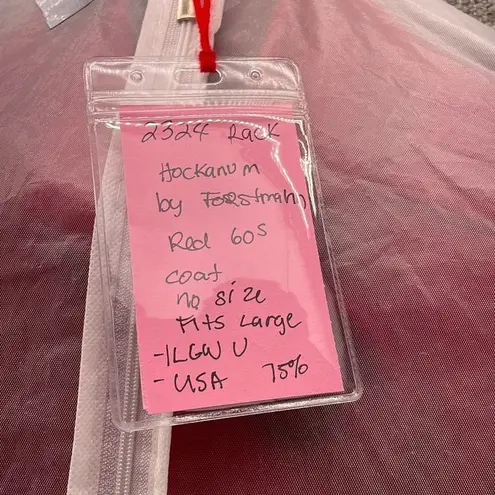 2324 Rack
Hockanum
by Forstmann
Red 60s
coat
no size
Fits Large
-ILGWU
-USA 75%